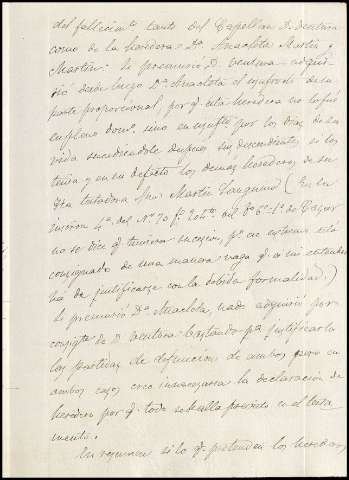 del fallecimto tanto del Capellan D. Ventura
como de la heredera Dª Anacleta Martin y
Martin. Si premurió D. Ventura adqui-
rió desde luego Dª Anacleta el usufructo de su
parte proporcional, por q. esta heredera no lo fué
en pleno domº, sino en usufto por los dias de su
vida sucediendole despues sus descendientes si los
tenia y en su defecto los demás herederos de su
tia testadora Sra. Martin (En la
4ª del Nº 70 fº 204 del
no se dice q. tuviera sucesion, pº al extremo está
consignado de una manera vaga q. a mi entender
há de justificarse con la debida formalidad.)
Si premurió Dª Anacleta, nada adquirió por
consigte de D. Ventura bastando pª justificarlo
las partidas de defuncion de ambos pero en
ambos casos creo innecesaria la declaración de
herederos por q. todo se halla previsto en el testa
mento.
En resumen si lo q. pretenden los herederos